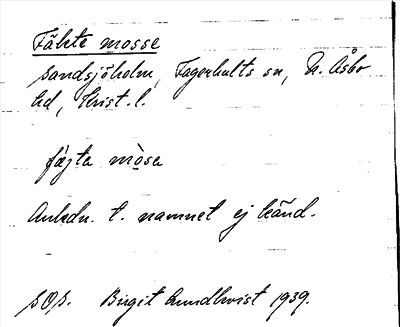 Fäkte mosse
Sandsjöholm, Fagerhults sn, N. Åsbo
hd, Krist. l.
fæ̀jta mòsa
Ankdn. t. namnet ej känd.
Birgit Lundkvist 1939.